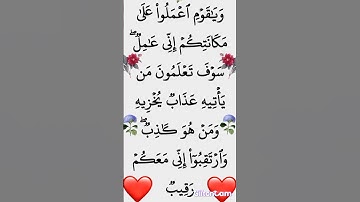 وَيَٰقَوۡمِ ٱعۡمَلُواْ عَلَىٰ
مَكَانَتِكُمۡ إِنِّي عَٰمِلٞۖ
سَوۡفَ تَعۡلَمُونَ مَن
يَأۡتِيهِ عَذَابٞ يُخۡزِيهِ
وَمَنۡ هُوَ كَٰذِبٞۖ
وَٱرۡتَقِبُوٓاْ إِنِّي مَعَكُمۡ
رَقِيبٞ